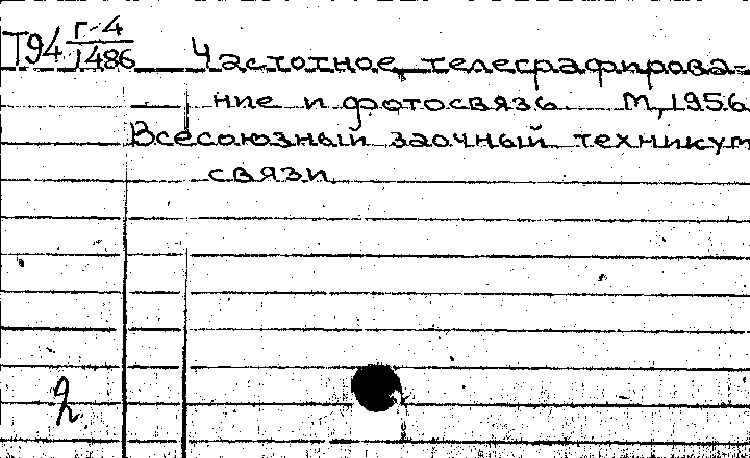 Т94 Г-4/1486 Частотное телеграфирова-
ние и фотосвязь М, 1956
Всесоюзный заочный техникум
связи
2